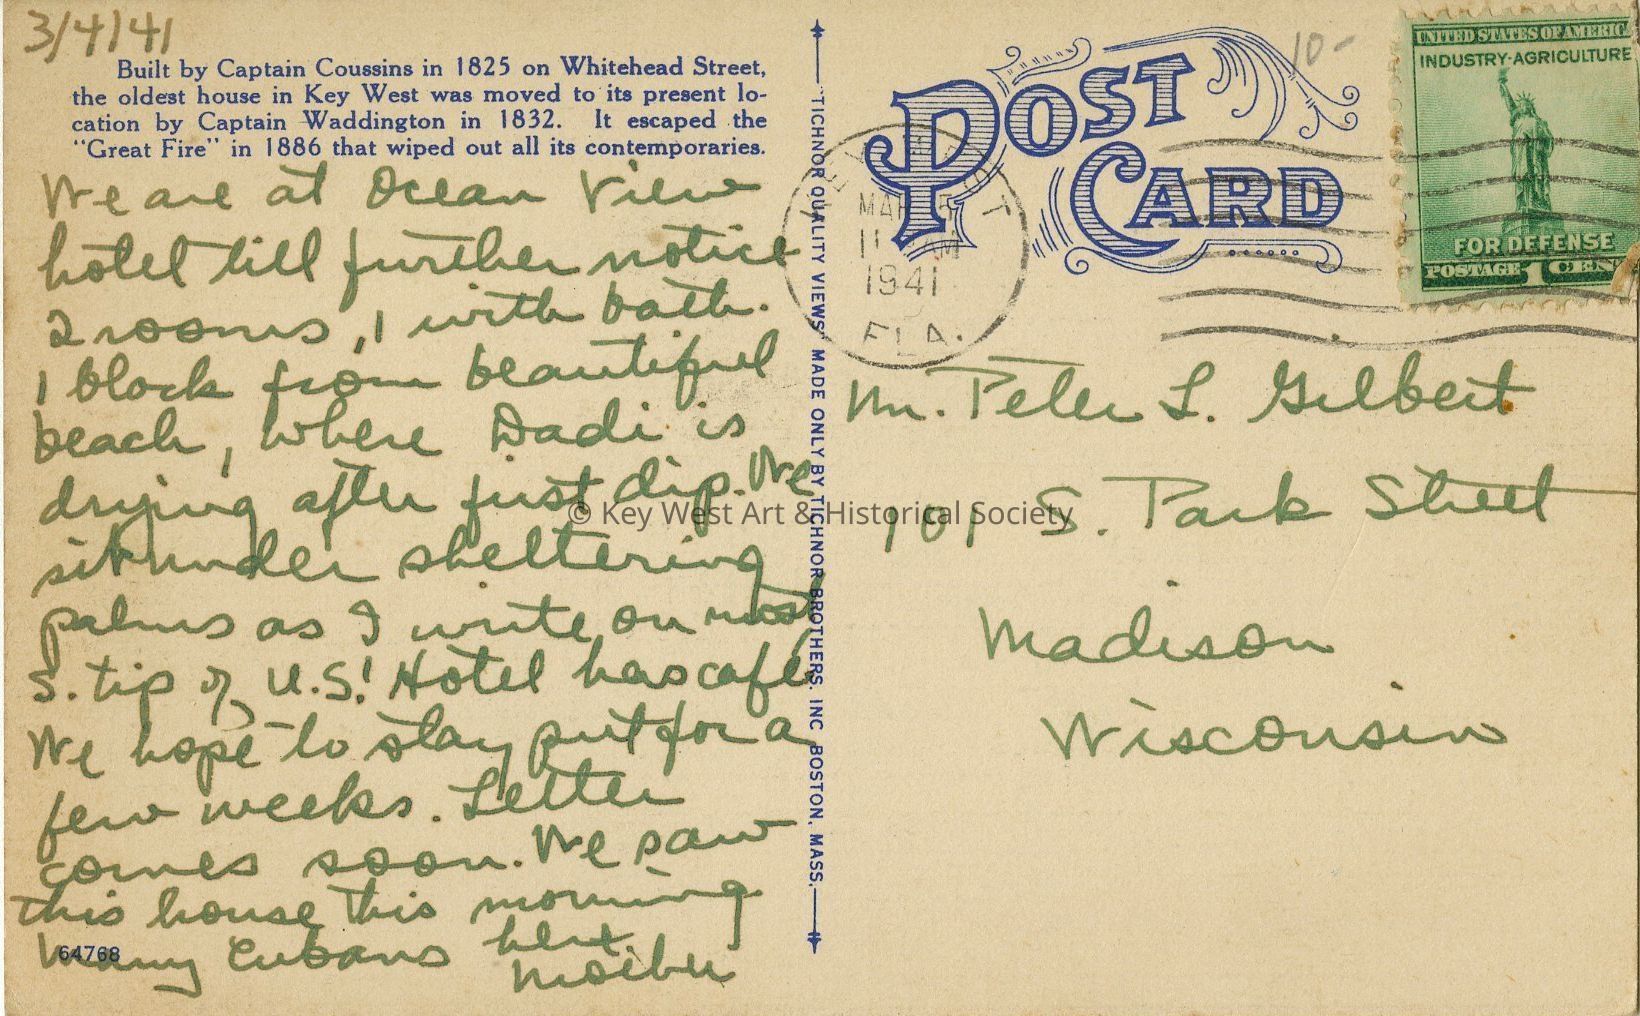 3/4/41
Built by Captain Coussins in 1825 on Whitehead Street,
the oldest house in Key West was moved to its present lo-
cation by Captain Waddington in 1832. It escaped the
"Great Fire" in 1886 that wiped out all its contemporaries.
We are at Ocean View
hotel till further notice
2 rooms, 1 with bath.
1 block from beautiful
beach, where Dadi is
drying after first dip. We
sit under sheltering
palms as I write on most
S. tip of U.S! Hotel has cafe
We hope to stay put for a
few weeks. Letter
comes soon. We saw
this house this morning
Many Cubans here.
Mother
64768
TICHNOR QUALITY VIEWS, MADE ONLY BY TICHNOR BROTHERS. INC BOSTON, MASS.
POST
CARD
10-
MAR 5
11 AM
1941
FLA.
UNITED STATES OF AMERICA
INDUSTRY·AGRICULTURE
FOR DEFENSE
POSTAGE 1 CENT
Mr. Peter L. Gilbert
1 S. Park Street
Madison
Wisconsin
© Key West Art & Historical Society